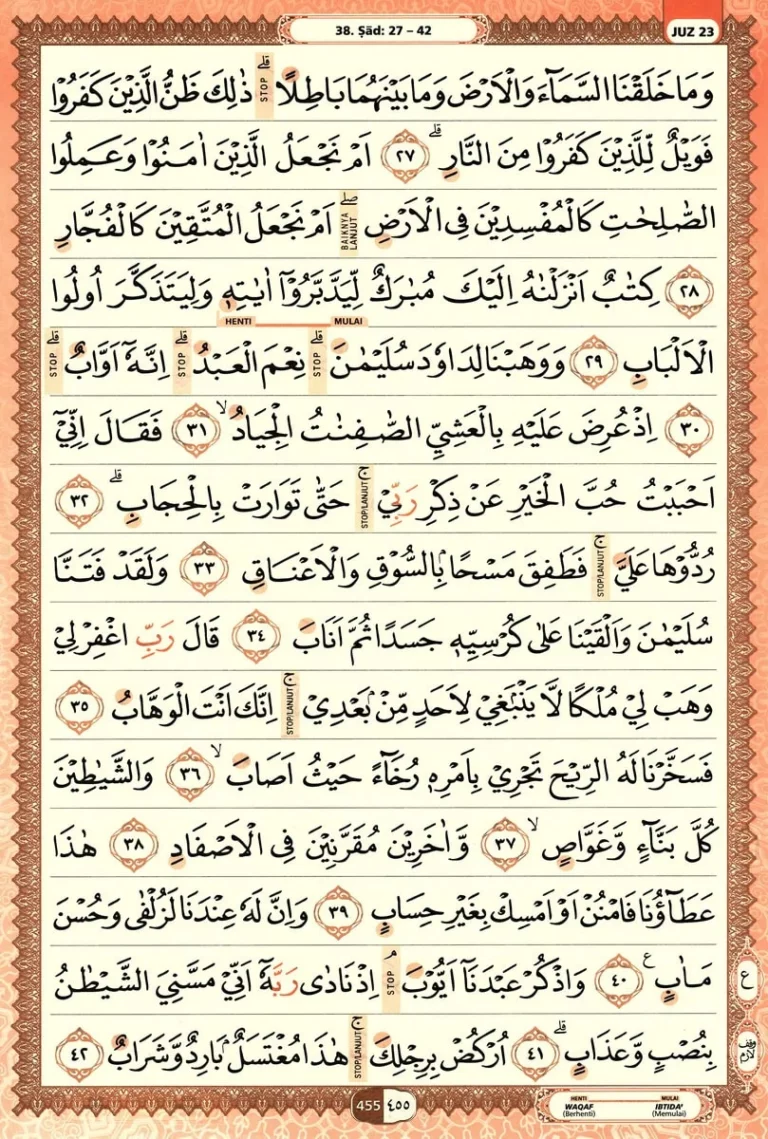 38. Ṣād: 27 – 42
JUZ 23
وَمَا خَلَقْنَا السَّمَاۤءَ وَالْاَرْضَ وَمَا بَيْنَهُمَا بَاطِلًا ۗ STOP ذٰلِكَ ظَنُّ الَّذِيْنَ كَفَرُوْا
فَوَيْلٌ لِّلَّذِيْنَ كَفَرُوْا مِنَ النَّارِۗ ٢٧ اَمْ نَجْعَلُ الَّذِيْنَ اٰمَنُوْا وَعَمِلُوا
الصّٰلِحٰتِ كَالْمُفْسِدِيْنَ فِى الْاَرْضِۖ BAIKNYA LANJUT اَمْ نَجْعَلُ الْمُتَّقِيْنَ كَالْفُجَّارِ
٢٨ كِتٰبٌ اَنْزَلْنٰهُ اِلَيْكَ مُبٰرَكٌ لِّيَدَّبَّرُوْٓا اٰيٰتِهٖ وَلِيَتَذَكَّرَ اُولُوا
HENTI MULAI
الْاَلْبَابِ ٢٩ وَوَهَبْنَا لِدَاوٗدَ سُلَيْمٰنَۗ STOP نِعْمَ الْعَبْدُۗ STOP اِنَّهٗٓ اَوَّابٌۗ STOP
٣٠ اِذْ عُرِضَ عَلَيْهِ بِالْعَشِيِّ الصّٰفِنٰتُ الْجِيَادُۙ ٣١ فَقَالَ اِنِّيْٓ
اَحْبَبْتُ حُبَّ الْخَيْرِ عَنْ ذِكْرِ رَبِّيْۚ STOP/LANJUT حَتّٰى تَوَارَتْ بِالْحِجَابِۗ ٣٢
رُدُّوْهَا عَلَيَّۚ STOP/LANJUT فَطَفِقَ مَسْحًاۢ بِالسُّوْقِ وَالْاَعْنَاقِ ٣٣ وَلَقَدْ فَتَنَّا
سُلَيْمٰنَ وَاَلْقَيْنَا عَلٰى كُرْسِيِّهٖ جَسَدًا ثُمَّ اَنَابَ ٣٤ قَالَ رَبِّ اغْفِرْ لِيْ
وَهَبْ لِيْ مُلْكًا لَّا يَنْۢبَغِيْ لِاَحَدٍ مِّنْۢ بَعْدِيْۚ STOP/LANJUT اِنَّكَ اَنْتَ الْوَهَّابُ ٣٥
فَسَخَّرْنَا لَهُ الرِّيْحَ تَجْرِيْ بِاَمْرِهٖ رُخَاۤءً حَيْثُ اَصَابَۙ ٣٦ وَالشَّيٰطِيْنَ
كُلَّ بَنَّاۤءٍ وَّغَوَّاصٍۙ ٣٧ وَّاٰخَرِيْنَ مُقَرَّنِيْنَ فِى الْاَصْفَادِ ٣٨ هٰذَا
عَطَاۤؤُنَا فَامْنُنْ اَوْ اَمْسِكْ بِغَيْرِ حِسَابٍ ٣٩ وَاِنَّ لَهٗ عِنْدَنَا لَزُلْفٰى وَحُسْنَ
مَاٰبٍ ࣖ ٤٠ وَاذْكُرْ عَبْدَنَآ اَيُّوْبَۘ STOP اِذْ نَادٰى رَبَّهٗٓ اَنِّيْ مَسَّنِيَ الشَّيْطٰنُ
ع
بِنُصْبٍ وَّعَذَابٍۗ ٤١ اُرْكُضْ بِرِجْلِكَۚ STOP/LANJUT هٰذَا مُغْتَسَلٌۢ بَارِدٌ وَّشَرَابٌ ٤٢
وقف لازم
455 ٤٥٥
HENTI MULAI
WAQAF (Berhenti) IBTIDA' (Memulai)